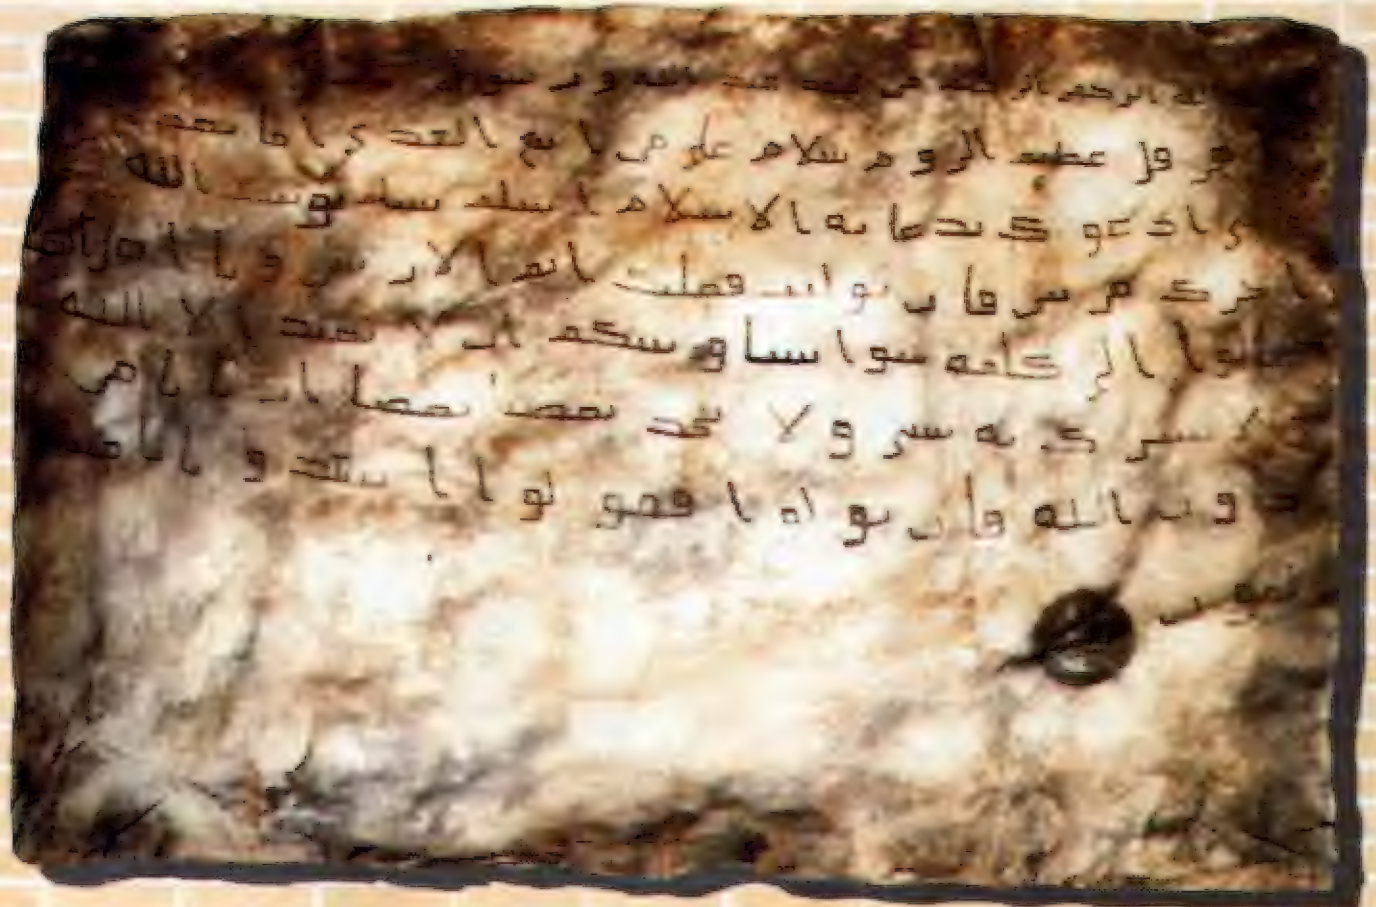 الله الرحمن الرحيم من محمد عبد الله ورسوله
هرقل عظيم الروم سلام على من اتبع الهدى اما بعد
ى ادعوك بدعاية الاسلام اسلم تسلم يوتك الله
اجرك مرتين فان توليت فعليك اثم الاريسين ويا اهل
تعالوا الى كلمة سوا بيننا وبينكم ان لا نعبد الا الله
ولا نشرك به شى ولا يتخذ بعضنا بعضا اربابا من
دون الله فان تولوا فقولوا اشهدوا بانا
مسلمون